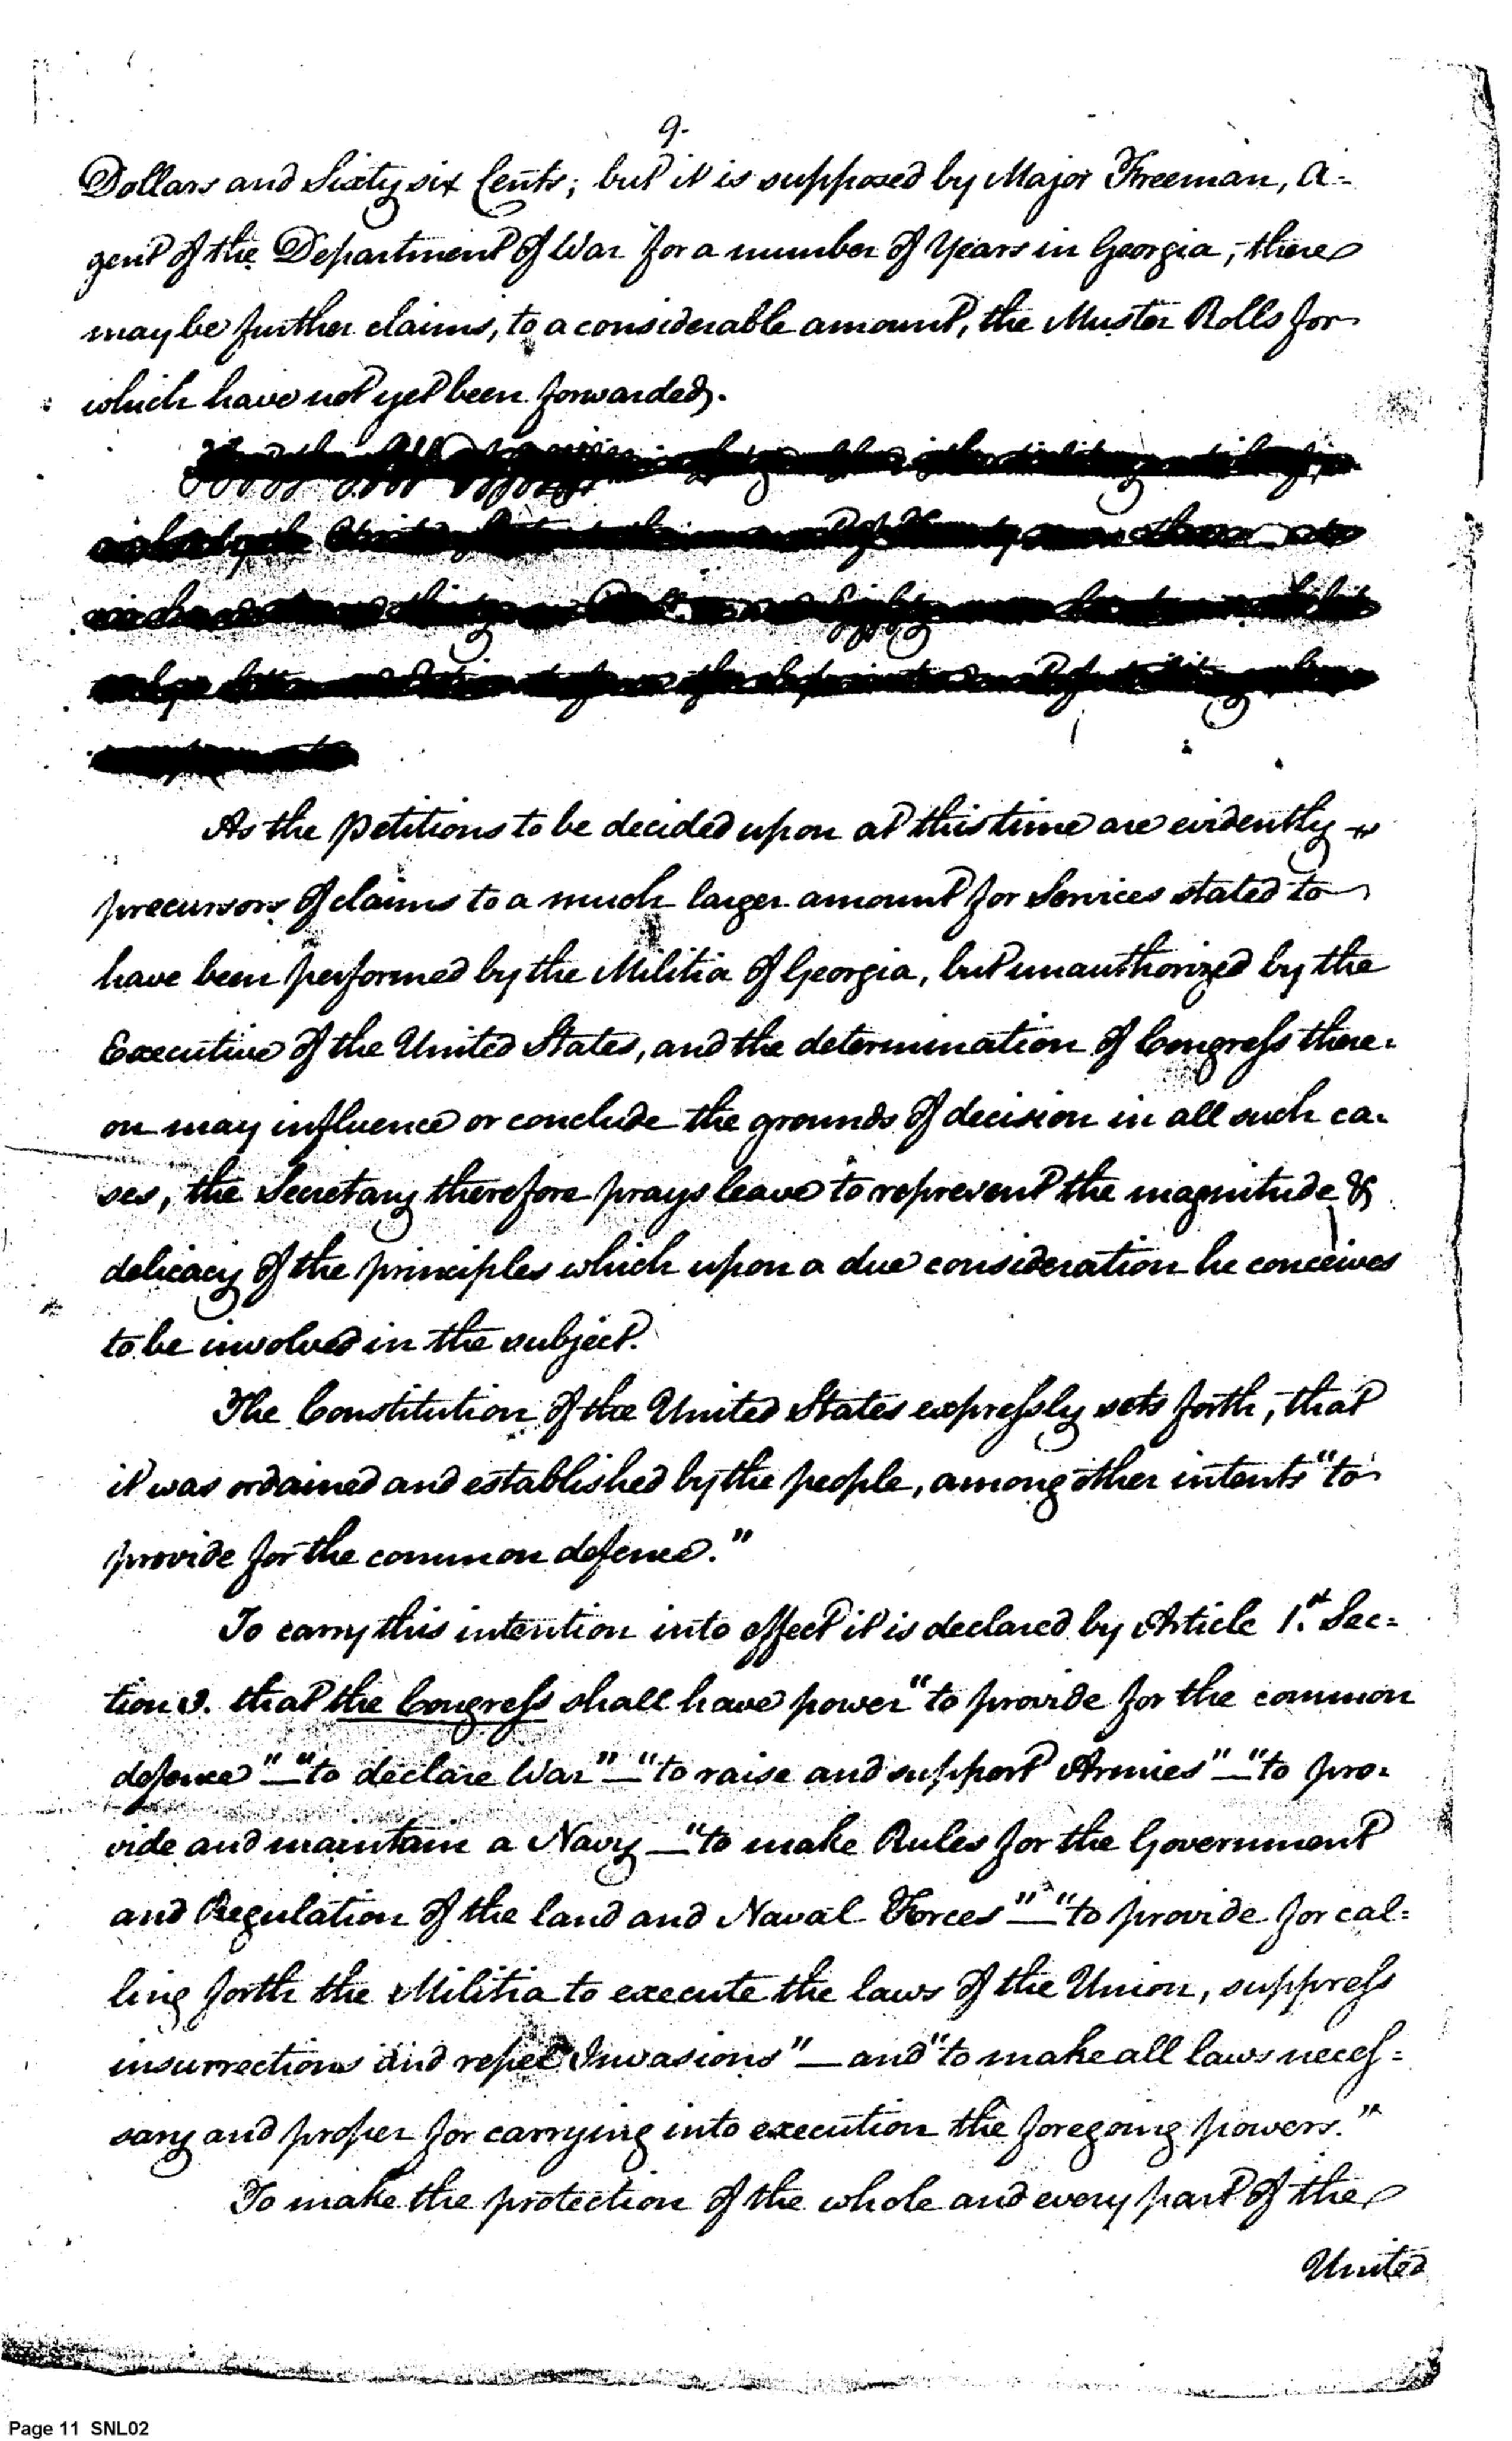 9.
Dollars and Sixty six Cents; but it is supposed by Major Freeman, A=
gent of the Department of War for a number of Years in Georgia, there
may be further claims, to a considerable amount, the Muster Rolls for
which have not yet been forwarded.
As the petitions to be decided upon at this time are evidently
precursors of claims to a much larger amount for Services stated to
have been performed by the Militia of Georgia, but unauthorized by the
Executive of the United States, and the determination of Congress there=
on may influence or conclude the grounds of decision in all such ca=
ses, the Secretary therefore prays leave to represent the magnitude &
delicacy of the principles which upon a due consideration he conceives
to be involved in the subject.
The Constitution of the United States expressly sets forth, that
it was ordained and established by the people, among other intents "to
provide for the common defence."
To carry this intention into effect it is declared by Article 1.st Sec=
tion 8. that the Congress shall have power "to provide for the common
defence" — "to declare War" — "to raise and support Armies" — "to pro=
vide and maintain a Navy — "to make Rules for the Government
and Regulation of the land and Naval Forces" — "to provide for cal=
ling forth the Militia to execute the laws of the Union, suppress
insurrections and repel Invasions" — and "to make all laws neces=
sary and proper for carrying into execution the foregoing powers."
To make the protection of the whole and every part of the
United
Page 11 SNL02